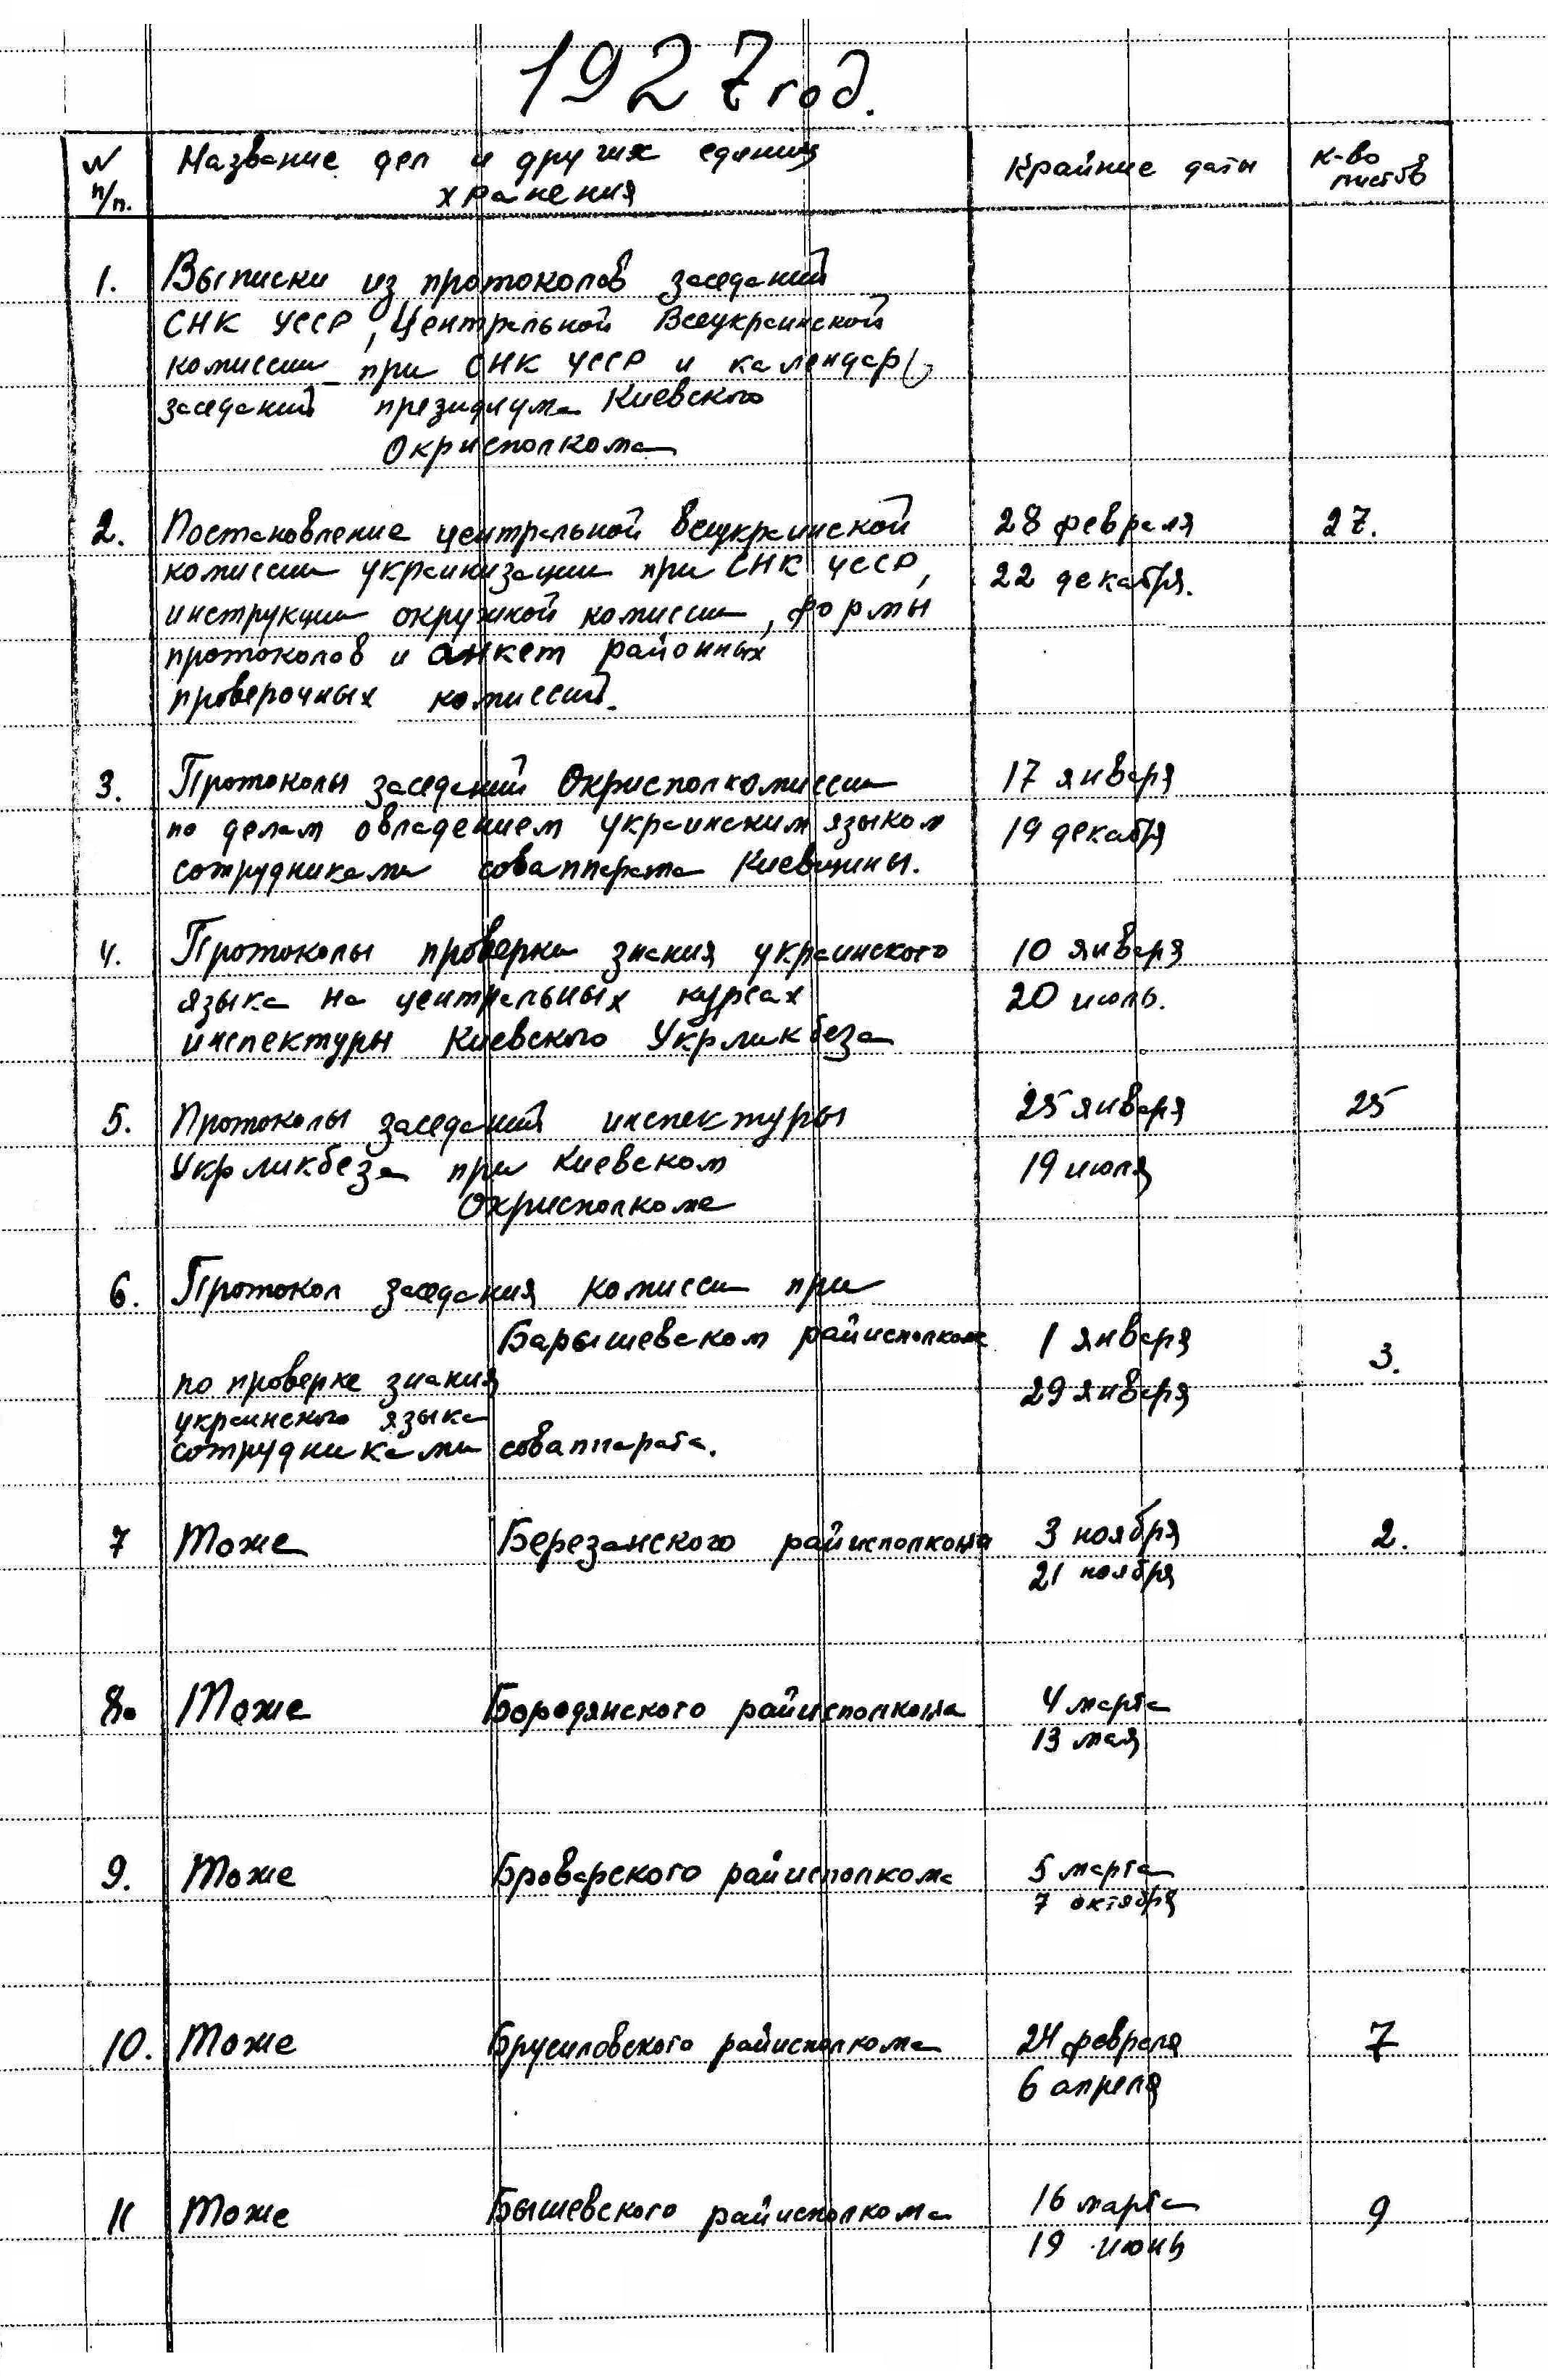 1927 год.
N п/п. Название дел и других единиц хранения Крайние даты К-во листов
1. Выписки из протоколов заседаний
СНК УССР, Центральной Всеукраинской
комиссии при СНК УССР и календарь
заседаний президиума Киевского
Окрисполкома
2. Постановление центральной всеукраинской 28 февраля 27.
комиссии украинизации при СНК УССР, 22 декабря.
инструкции окружной комиссии, формы
протоколов и анкет районных
проверочных комиссий.
3. Протоколы заседаний Окрисполкомиссии 17 января
по делам овладением украинским языком 19 декабря
сотрудниками соваппарата Киевщины.
4. Протоколы проверки знания украинского 10 января
языка на центральных курсах 20 июль.
инспектуры Киевского Укрликбеза
5. Протоколы заседаний инспектуры 25 января 25
Укрликбеза при Киевском 19 июля
Окрисполкоме
6. Протокол заседания комиссии при
Барышевском райисполкоме 1 января 3.
по проверке знания 29 января
украинского языка
сотрудниками соваппарата.
7 Тоже Березанского райисполкома 3 ноября 2.
21 ноября
8. Тоже Бородянского райисполкома 4 марта
13 мая
9. Тоже Броварского райисполкома 5 марта
7 октября
10. Тоже Брусиловского райисполкома 24 февраля 7
6 апреля
11 Тоже Бышевского райисполкома 16 марта 9
19 июнь